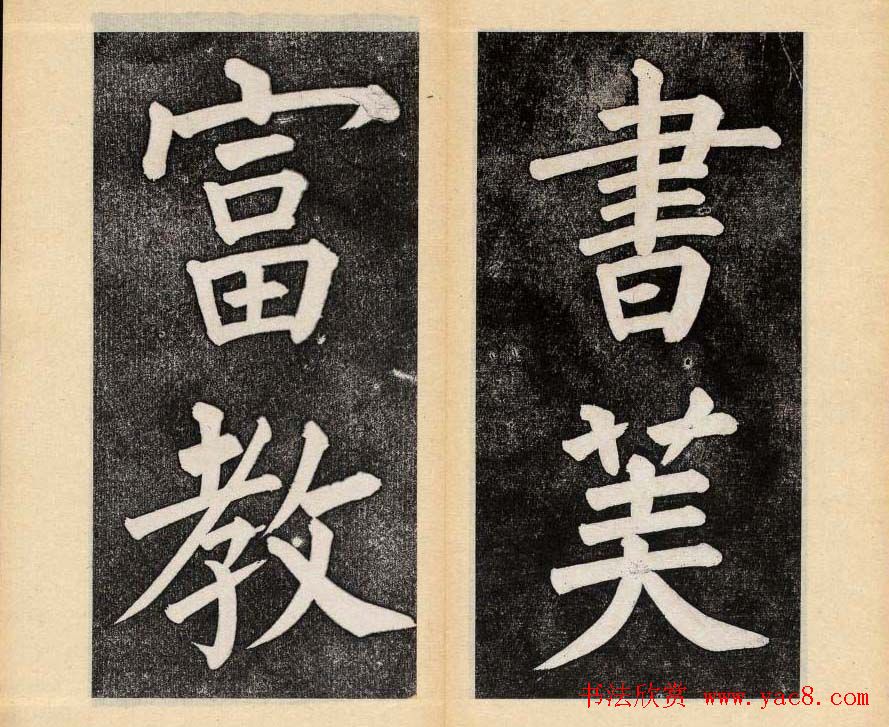 書美
富教
书法欣赏 www.yac8.com